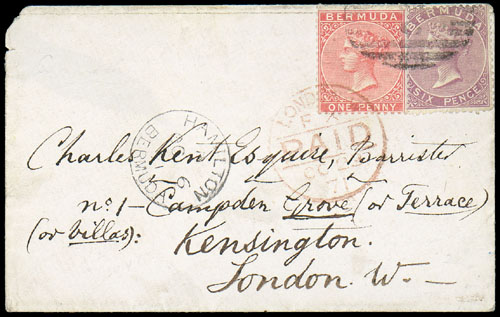 BERMUDA
ONE PENNY
BERMUDA
SIX PENCE
LONDON
PAID
71
HAMILTON
BERMUDA
Charles Kent Esquire, Barrister
no. 1 - Campden Grove (or Terrace)
(or Villas):
Kensington.
London. W. -